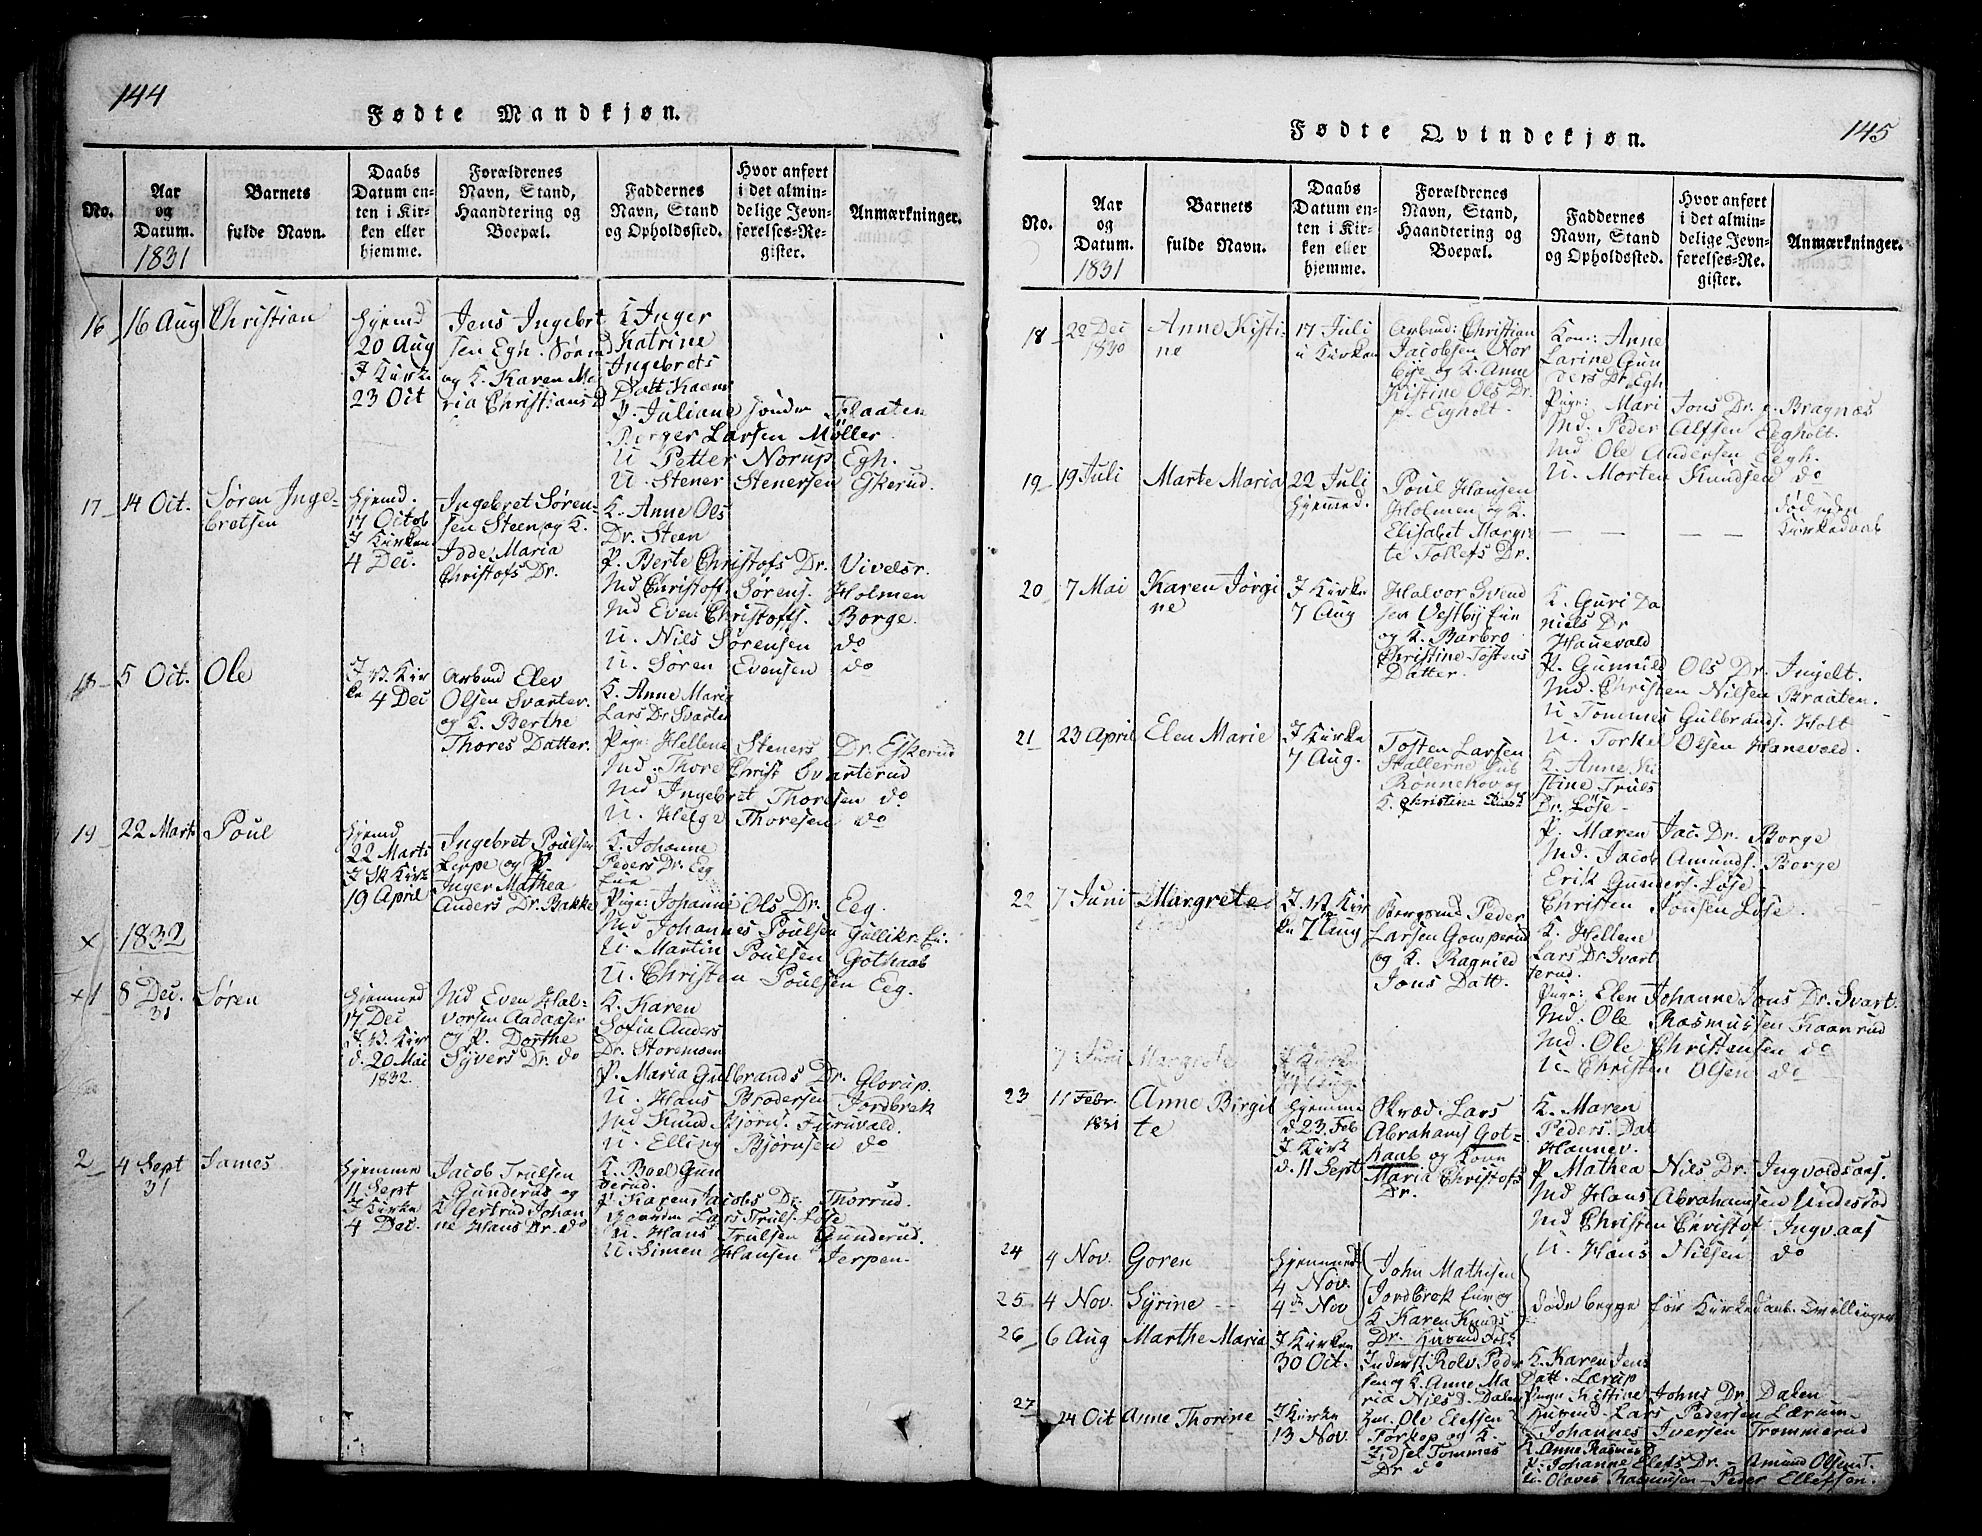 144
Fødte Mandkjøn.
No.
Aar og Datum. 1831
Barnets fulde Navn.
Daabs Datum enten i Kirken eller hjemme.
Forældrenes Navn, Stand, Haandtering og Boepæl.
Faddernes Navn, Stand og Opholdssted.
Hvor anført i det almindelige Jevnførelses-Register.
Anmærkninger.
16
16 Aug
Christian
Hjemd
20 Aug
I Kirke
23 Oct
Jens Ingebret
sen Egh. Sørend
og K. Karen Ma
ria Christians D
K. Inger
Katrine
Ingebrets
Datt
P. Juliane Sønden Flaaten
Børger Larsen Møller
U Petter Norup Egh.
U. Stener Stenersen Eskerud.
17
14 Oct.
Søren Inge-
bretsen
Hjemd.
17 Octob
I Kirken
4 Dec.
Ingebret Søren-
sen Steen og K.
Maria
Christofs Dr.
K. Anne Ols
Dr. Steen
P. Berte Christofs Dr. Vivelsr.
Md Christoff Sørens. Holmen
Md Even Christoffs. Borge.
U. Nils Sørensen do
U. Søren Evensen do
18
5 Oct.
Ole
I V. Kir
ke
4 Dec
Arbmd Elev
Olsen Svarter.
og K. Berthe
Thores Datter.
K. Anne Maria
Lars Dr Svarte
Pige: Hellene Steners Dr. Eskerud
Md. Thore Christ Svarterud
Md Ingebret Thoresen do
U. Helge Thoresen do
19
22 Marts
Poul
Hjemd
22 Marts
I Sk Kirk
19 April
Ingebret Poulsen
Lerpe og P.
Inger Mathea
Anders Dr. Bakke
K. Johanne
Peders Dr. Eeg
Pige: Johanne Ols Dr. Eeg.
Md Johannes Poulsen Gullikr. Ei.
U. Martin Poulsen Gothaab
U. Christen Poulsen Eeg.
x 1832
x 1
8 Dec.
31
Søren
Hjemmed
17 Dec
I. V. Kir
d. 20 Mai
1832.
Md Even Hal-
vorsen Aadaaser
og P. Dorthe
Syvers Dr. do
K. Karen
Sofia Anders
Dr. Storemoen
P. Maria Gulbrands Dr. Glorup.
U. Hans Brodersen Jordbrek
Md Knud Bjørns. Furuvald.
U. Elling Bjørnsen do
2
4 Sept
31
James
Hjemme
11 Sept
I Kirke
4 Dec.
Jacob Trulsen
Gunderud og
K Gertrud Johan
ne Hans Dr. do
K. Boel Gun
derud.
P. Karen Jacobs Dr. Thorrud.
Lars Truls. Løse.
U. Hans Trulsen Gunderud.
U. Simen Hansen Jerpen.
145
Fødte Qvindekjøn.
No.
Aar og Datum. 1831
Barnets fulde Navn.
Daabs Datum enten i Kirken eller hjemme.
Forældrenes Navn, Stand, Haandtering og Boepæl.
Faddernes Navn, Stand og Opholdssted.
Hvor anført i det almindelige Jevnførelses-Register.
Anmærkninger.
18
22 Dec
1830
Anne Kisti-
ne
17 Juli
i Kirken
Arbmd: Christian
Jacobsen Nor
bye og K. Anne
Kistine Ols Dr.
p. Egholt.
Kone: Anne
Larine Gun
ders Dr. Egh
Pige: Mari Jons Dr. p. Bragnæs
Md. Peder Alfsen Egholt.
Md Ole Andersen Egh.
U. Morten Knudsen do
19
19 Juli
Marte Maria
22 Juli
hjemmed.
Poul Hansen
Holmen og K.
Elisabet Margre
te Tollefs Dr.
— — — —
død uden
Kirkedaab
20
7 Mai
Karen Jørgi
ne
I Kirke
7 Aug
Halvor Svend
sen Vestby Eier
og K. Barbro
Christine Tostens
Datter.
K. Guri Da
niels Dr
Hanevald
P. Gunnild Ols Dr. Ingelt.
Md. Christen Nilsen Braaten.
U. Tommes Gulbrands. Holt
U. Torkel Olsen Hanevold.
21
23 April
Elen Marie
I Kirke
7 Aug.
Tosten Larsen
Skallerne Gub
Rønnehov og
K. Christine
K. Anne Ki
stine Truls
Dr. Løse
P. Maren Jac. Dr. Borge
Md. Jacob Amunds. Borge
Erik Gunders. Løse
Christen Jonsen Løse.
22
7 Juni
Margrete
I. V. Kir
ke 7 Aug
Bergsmd Peder
Larsen Gomperud
og K. Ragnild
Jons Datt.
K. Hellene
Lars Dr. Svart
terud.
Pige: Elen Johanne Jons Dr. Svart.
Md. Ole Rasmussen Kaanrud
Md. Ole Christensen do
U. Christen Olsen do
7 Juni
Margrete
I Kirke
7 Aug.
23
11 Febr.
1831
Anne Birgit
te
Hjemme
d 23. Feb
I Kirk
d. 11 Sept
Skræd. Lars
Abrahams Got-
haab og Kone
Maria Christofs
Dr.
K. Maren
Peders. Dat
Hannev.
P. Mathea Nils Dr. Ingvoldsaas.
Md Hans Abrahamsen Undesrod
Md Christen Christof. Ingvaas
U. Hans Nilsen do
24
4 Nov.
Goren
Hjemmed
4 Nov.
25
4 Nov.
Syrine
4de Nov
John Mathisen
Jordbrek Eier og
K. Karen Knuds
Dr.
døde begge før Kirkedaab. Tvillinger
26
6 Aug
Marthe Maria
I Kirken
30 Oct.
Inderst Rolv Peder
sen og K. Anne Ma
ria Nils D. Dalen
K. Karen Jens
Datt. Lærup
Pige Kistine Johns Dr. Dalen
Huusmd. Lars Pedersen Lærum
Johannes Iversen Trommerud
27
24 Oct
Anne Thorine
I Kirke
13 Nov.
Hm. Ole Elefsen
Torkop og K.
Sidsel Tommes
Dr do
K Anne Rasmus D
P. Johanne Elefs Dr. – Amund Olsen T.
U. Olaves Rasmusen – Peder Ellefsen.